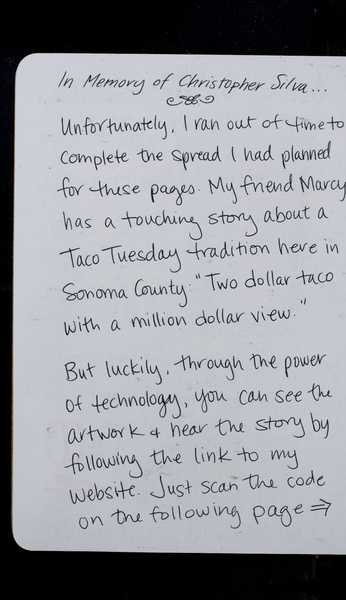 In Memory of Christopher Silva...
Unfortunately, I ran out of time to
complete the spread I had planned
for these pages. My friend Marcy
has a touching story about a
Taco Tuesday tradition here in
Sonoma County: "Two dollar taco
with a million dollar view."
But luckily, through the power
of technology, you can see the
artwork & hear the story by
following the link to my
website. Just scan the code
on the following page ⇒